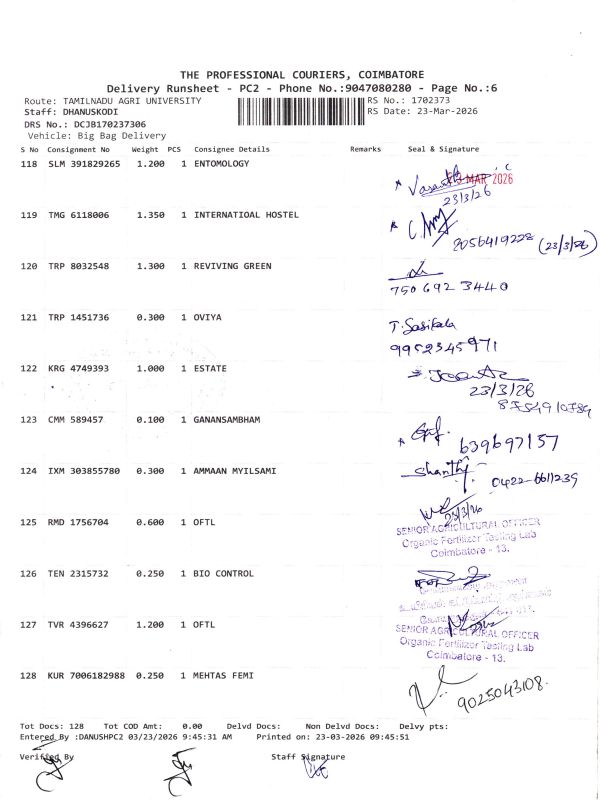 THE PROFESSIONAL COURIERS, COIMBATORE
Delivery Runsheet - PC2 - Phone No.:9047080280 - Page No.:6
Route: TAMILNADU AGRI UNIVERSITY RS No.: 1702373
Staff: DHANUSKODI RS Date: 23-Mar-2026
DRS No.: DCJB170237306
Vehicle: Big Bag Delivery
S No Consignment No Weight PCS Consignee Details Remarks Seal & Signature
118 SLM 391829265 1.200 1 ENTOMOLOGY
MAR 2026
23/3/26
119 TMG 6118006 1.350 1 INTERNATIOAL HOSTEL
8056419228 (23/3/26)
120 TRP 8032548 1.300 1 REVIVING GREEN
750 692 3440
121 TRP 1451736 0.300 1 OVIYA
T. Sasikala
9952345971
122 KRG 4749393 1.000 1 ESTATE
23/3/26
123 CMM 589457 0.100 1 GANANSAMBHAM
639697157
124 IXM 303855780 0.300 1 AMMAAN MYILSAMI
Shanthi
0422-6611239
125 RMD 1756704 0.600 1 OFTL
23/3/26
SENIOR AGRICULTURAL OFFICER
Organic Fertilizer Testing Lab
Coimbatore - 13.
126 TEN 2315732 0.250 1 BIO CONTROL
127 TVR 4396627 1.200 1 OFTL
SENIOR AGRICULTURAL OFFICER
Organic Fertilizer Testing Lab
Coimbatore - 13.
128 KUR 7006182988 0.250 1 MEHTAS FEMI
9025043108.
Tot Docs: 128 Tot COD Amt: 0.00 Delvd Docs: Non Delvd Docs: Delvy pts:
Entered By :DANUSHPC2 03/23/2026 9:45:31 AM Printed on: 23-03-2026 09:45:51
Verified By Staff Signature